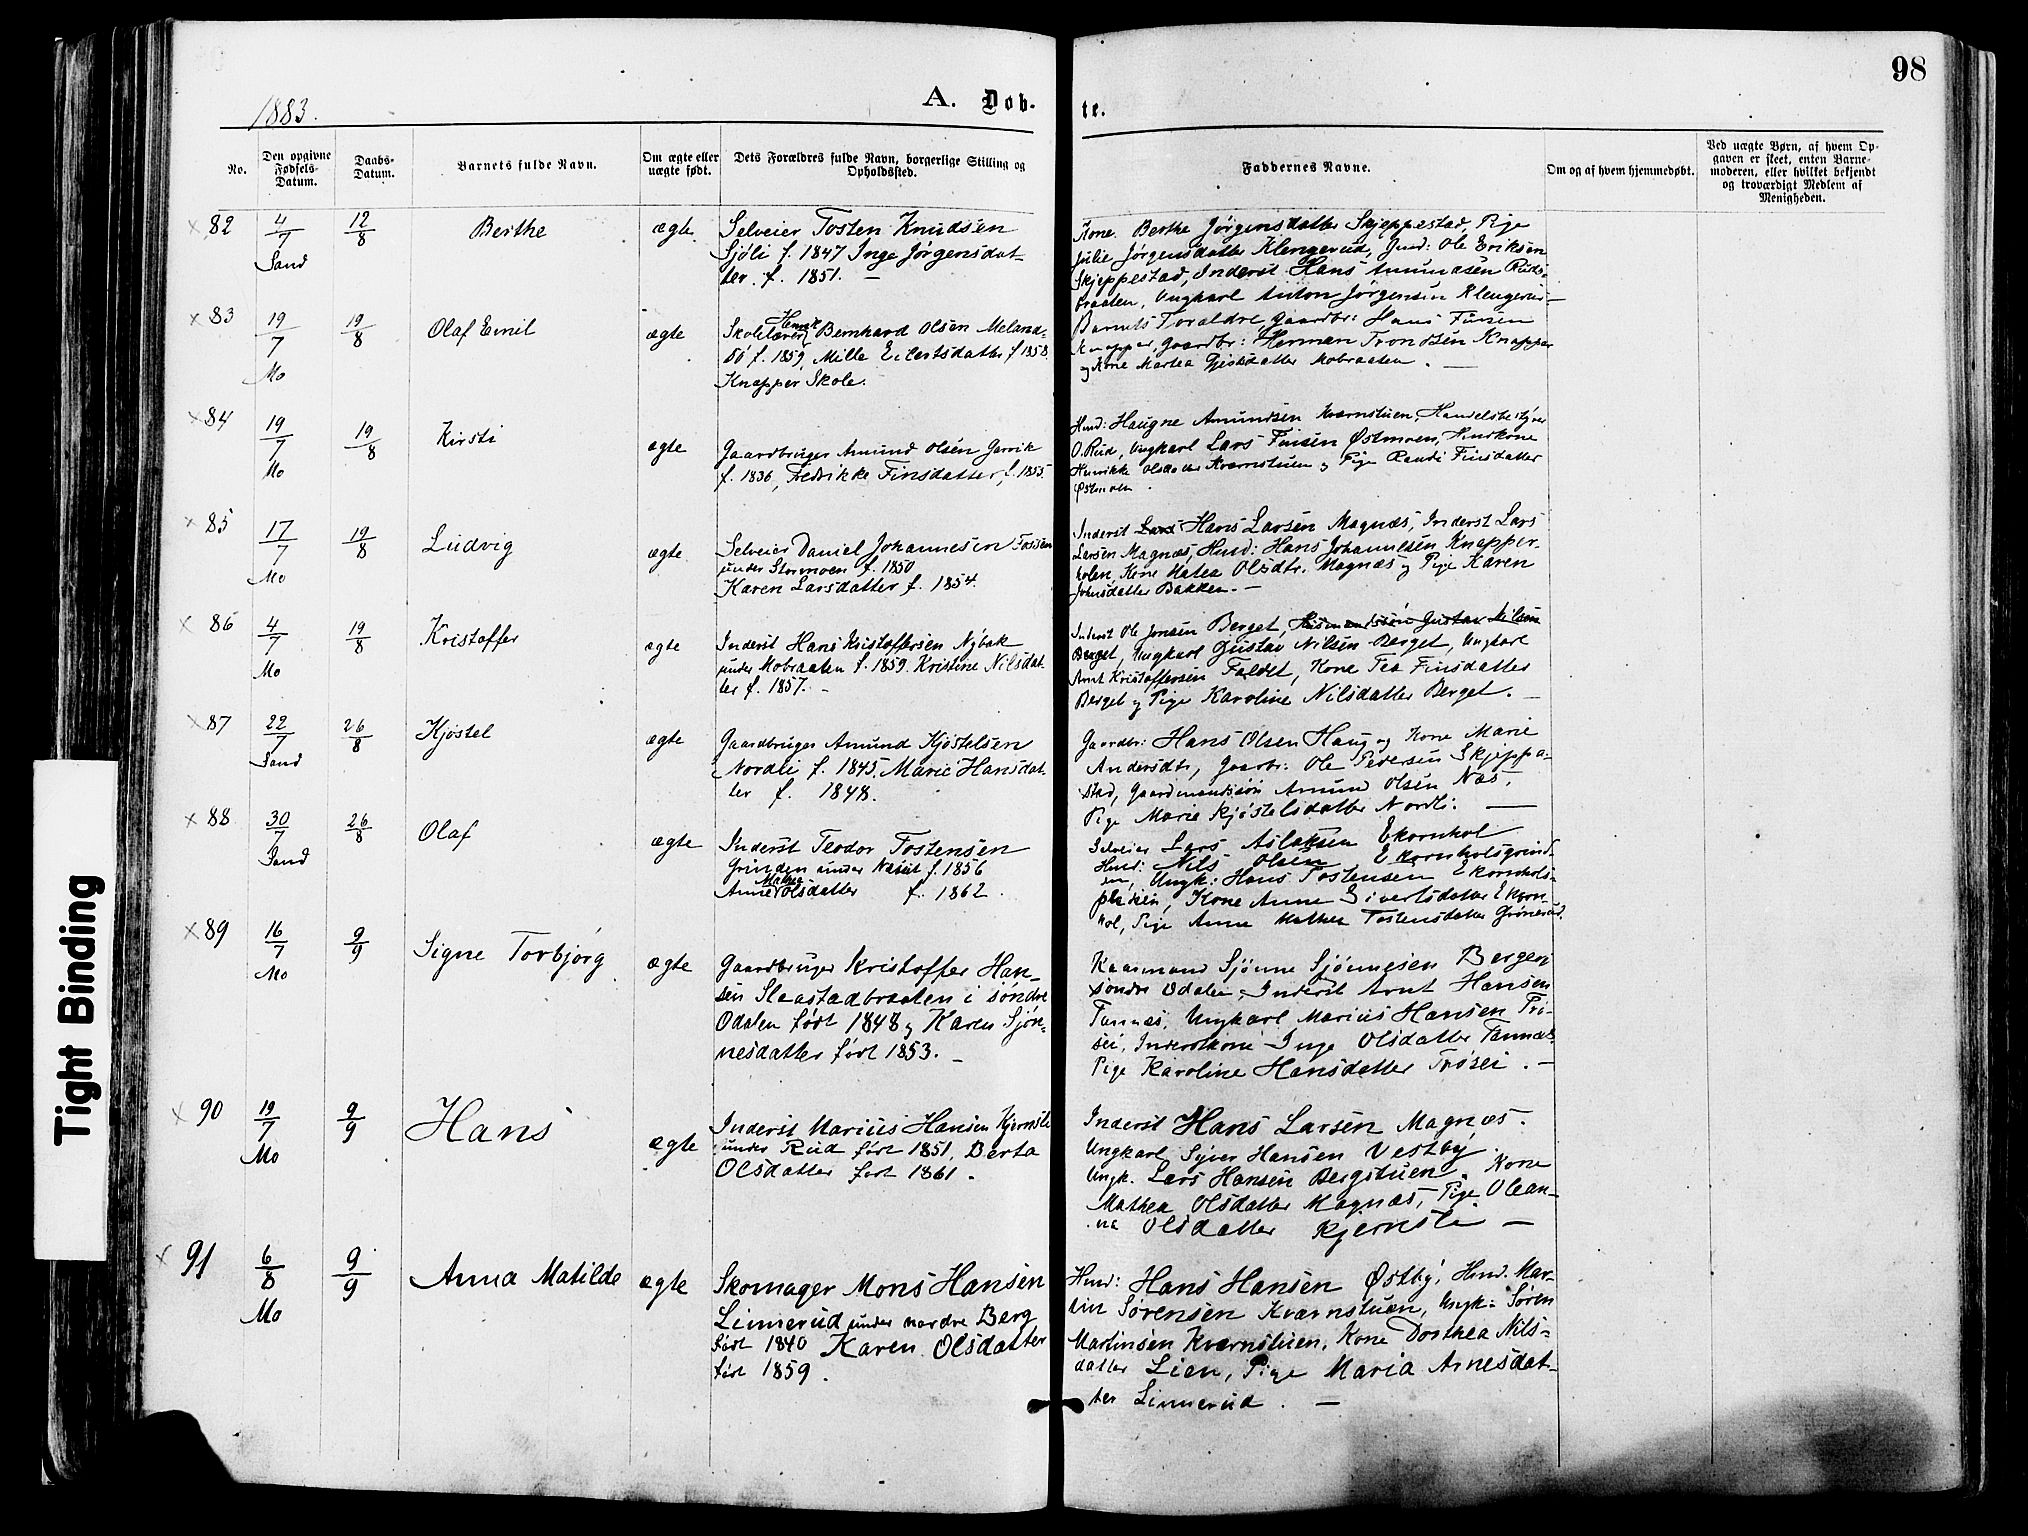 98
1883.
A. Døb-
te.
No.
Den opgivne
Fødsels-
Datum.
Daabs-
Datum.
Barnets fulde Navn.
Om ægte eller
uægte født.
Dets Forældres fulde Navn, borgerlige Stilling og
Opholdssted.
Faddernes Navne.
Om og af hvem hjemmedøbt.
Ved uægte Børn, af hvem Op-
gaven er skeet, enten Barne-
moderen, eller hvilket bekjendt
og troværdigt Medlem af
Menigheden.
× 82
4/7
Sand
12/8
Berthe
ægte
Selveier Tosten Knudsen
Sjöli f. 1847 Inge Jørgensdat-
ter. f. 1851. —
Kone Berthe Jørgensdatter Skjeppestad, Pige
Julie Jørgensdatter Klengerud, Gmd: Ole Eriksen
Skjeppestad, Inderst Hans Amundsen Ruds-
braaten, Ungkarl Anton Jørgensen Klengerud —
× 83
19/7
Mo
19/8
Olaf Emil
ægte
Skolelærer Henrik Bernhard Olsen Meland-
sö f. 1859, Mille Eilertsdatter f 1858.
Knapper Skole.
Barnets Forældre, Gaardbr: Hans Finsen
Knapper, Gaardbr: Herman Trondsen Knapper
og Kone Martea Gjestsdatter Mobraaten. —
× 84
19/7
Mo
19/8
Kirsti
ægte
Gaardbruger Amund Olsen Garvik
f. 1836, Fredrikke Finsdatter, f. 1855.
Hmd: Haugne Amundsen Kværnstuen, Handelsbestyrer
O. Rud, Ungkarl Lars Finsen Østmoen, Huskone
Henrikke Olsdatter Kværnstuen og Pige Randi Finsdatter
Østmoen.
× 85
17/7
Mo
19/8
Ludvig
ægte
Selveier Daniel Johannesen Fossen
under Stormoen f. 1850
Karen Larsdatter f. 1854.
Inderst Lars Hans Larsen Magnæs, Inderst Lars
Larsen Magnæs, Hmd: Hans Johannesen Knapper-
holen, Kone Matea Olsdtr. Magnæs og Pige Karen
Johnsdatter Bakken. —
× 86
4/7
Mo
19/8
Kristoffer
ægte
Inderst Hans Kristoffersen Nybak
under Mobraaten f. 1859. Kristine Nilsdat-
ter f. 1857. —
Inderst Ole Jensen Berget, Husmandssön Gustav Nilsen
Berget, Ungkarl Gustav Nilsen Berget, Ungkarl
Arnt Kristoffersen Faldet, Kone Tea Finsdatter
Berget og Pige Karoline Nilsdatter Berget. —
× 87
22/7
Sand
26/8
Kjøstel
ægte
Gaardbruger Amund Kjøstelsen
Nordli f. 1845, Marie Hansdat-
ter f. 1848.
Gaardbr: Hans Olsen Haug og Kone Marie
Andersdtr, Gaardbr. Ole Pedersen Skjeppe-
stad, Gaardmandssön Amund Olsen Næs,
Pige Marie Kjøstelsdatter Nordli. —
× 88
30/7
Sand
26/8
Olaf
ægte
Inderst Teodor Tostensen
Grinden under Næset f. 1856
Anne Mathea Olsdatter f. 1862.
Selveier Lars Aslaksen Ekornhol
Hmd: Nils Olsen Ekornholsgrind-
en, Ungk: Hans Tostensen Ekornhols-
pladsen, Kone Anne Sivertsdatter Ekorn-
hol, Pige Anne Mathea Tostensdatter Grönerud.
× 89
16/7
Mo
9/9
Signe Torbjørg
ægte
Gaardbruger Kristoffer Han-
sen Slaastadbraaten i søndre
Odalen født 1848 og Karen Sjön-
nesdatter født 1853. —
Kaarmand Sjønne Sjønnesen Bergers
søndre Odalen, Inderst Arnt Hansen
Tannæs, Ungkarl Marius Hansen Trö-
sei, Inderstkone Inge Olsdatter Tannæs
Pige Karoline Hansdatter Trösei. —
× 90
19/7
Mo
9/9
Hans
ægte
Inderst Marius Hansen Kjernsli
under Rud født 1851, Berta
Olsdatter født 1861.
Inderst Hans Larsen Magnæs.
Ungkarl Syver Hansen Vestby,
Ungk. Lars Hansen Bergstuen, Kone
Mathea Olsdatter Magnæs, Pige Olean-
na Olsdatter Kjernsli —
× 91
6/8
Mo
9/9
Anna Matilde
ægte
Skomager Mons Hansen
Linnerud under nordre Berg
født 1840 Karen Olsdatter
født 1859.
Hmd: Hans Hansen Østby, Hmd. Mar-
tin Sørensen Kværnstuen, Ungk: Sören
Martinsen Kværnstuen, Kone Dorthea Nils-
datter Lien, Pige Maria Arnesdat-
ter Linnerud. —
Tight Binding